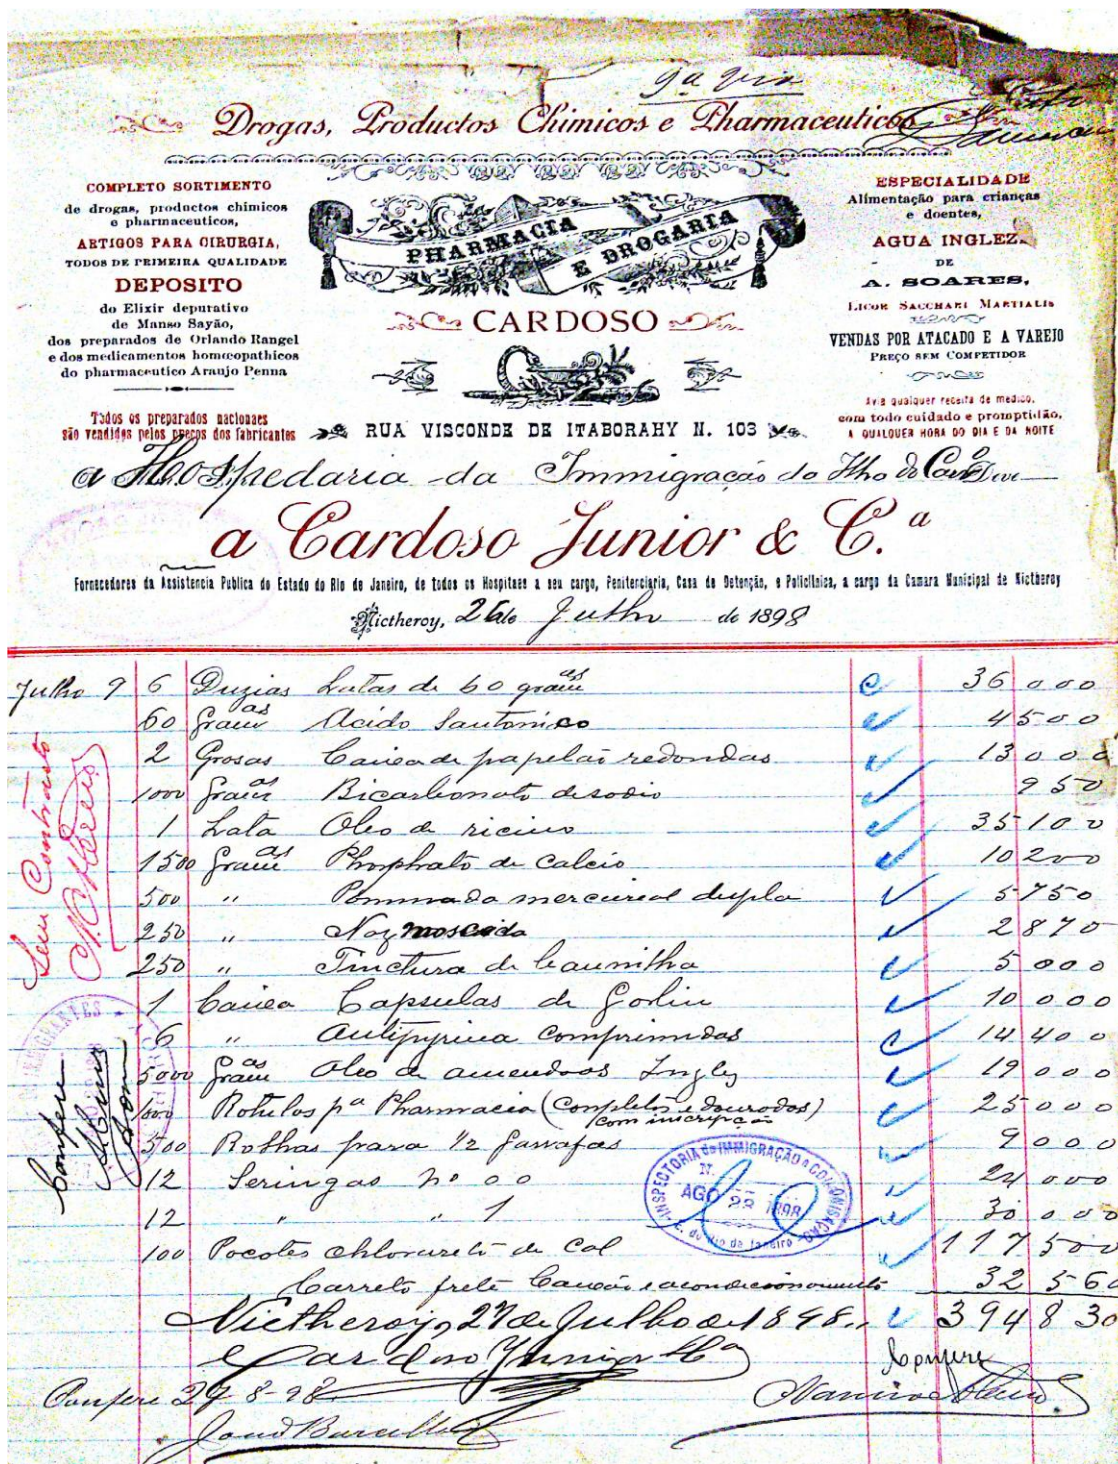 9a via
Drogas, Productos Chimicos e Pharmaceuticos
COMPLETO SORTIMENTO
de drogas, productos chimicos
e pharmaceuticos,
ARTIGOS PARA CIRURGIA,
TODOS DE PRIMEIRA QUALIDADE
DEPOSITO
do Elixir depurativo
de Manso Sayão,
dos preparados de Orlando Rangel
e dos medicamentos homœopathicos
do pharmaceutico Araujo Penna
Todos os preparados nacionaes
são vendidos pelos preços dos fabricantes
PHARMACIA
E DROGARIA
CARDOSO
RUA VISCONDE DE ITABORAHY N. 103
ESPECIALIDADE
Alimentação para crianças
e doentes,
AGUA INGLEZA
DE
A. SOARES,
LICOR SACCHARI MARTIALIS
VENDAS POR ATACADO E A VAREJO
PREÇO SEM COMPETIDOR
Avia qualquer receita de medico,
com todo cuidado e promptidão,
A QUALQUER HORA DO DIA E DA NOITE
a Hospedaria da Immigração do Ilha do Deve
a Cardoso Junior & C.a
Fornecedores da Assistencia Publica do Estado do Rio de Janeiro, de todos os Hospitaes a seu cargo, Penitenciaria, Casa de Detenção, e Policlinica, a cargo da Camara Municipal de Nictheroy
Nictheroy, 26 de Julho de 1898
Julho 9 6 Duzias Latas de 60 gramas 36 000
60 Gramas Acido Santonico 4500
2 Grosas Caixa de papelão redondas 13 000
1000 Gramas Bicarbonato de sodio 950
1 Lata Oleo de ricino 35 100
1500 Gramas Phosphato de calcio 10 200
500 " Pommada mercurial dupla 5 750
250 " Noz moscada 2 870
250 " Tinctura de baunilha 5 000
1 Caixa Capsulas de 10 000
6 " Antipyrina comprimidas 14 400
5000 Gramas Oleo de amendoas Inglez 19 000
1000 Rotulos pa Pharmacia (Completos e dourados) com inscripção 25 000
500 Rolhas para 1/2 garrafas 9 000
12 Seringas no 00 24 000
12 " " 1 30 000
100 Pacotes chlorureto de Cal 117 500
Carreto frete Caixão e acondicionamento 32 560
394 830
Nictheroy, 27 de Julho de 1898.
Cardoso Junior & Ca
Confere
Confere 29-8-98
Sem Contracto
Confere
INSPECTORIA de IMMIGRAÇÃO e COLONISAÇÃO
AGO 29 1898
E. do Rio de Janeiro